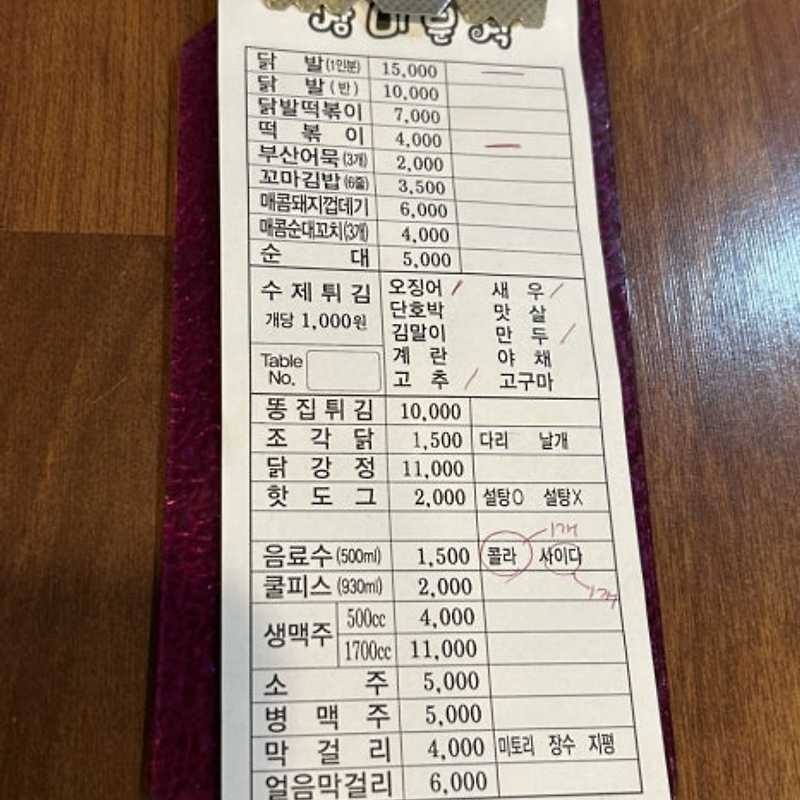 닭 발(1인분) 15,000
닭 발(반) 10,000
닭발떡볶이 7,000
떡 볶 이 4,000
부산어묵(3개) 2,000
꼬마김밥(6줄) 3,500
매콤돼지껍데기 6,000
매콤순대꼬치(3개) 4,000
순 대 5,000
수 제 튀 김
개당 1,000원
오징어 새 우
단호박 맛 살
김말이 만 두
계 란 야 채
고 추 고구마
Table
No.
똥 집 튀 김 10,000
조 각 닭 1,500 다리 날개
닭 강 정 11,000
핫 도 그 2,000 설탕O 설탕X
1개
음료수(500ml) 1,500 콜라 사이다
1개
쿨피스(930ml) 2,000
생맥주 500cc 4,000
1700cc 11,000
소 주 5,000
병 맥 주 5,000
막 걸 리 4,000 미토리 장수 지평
얼음막걸리 6,000